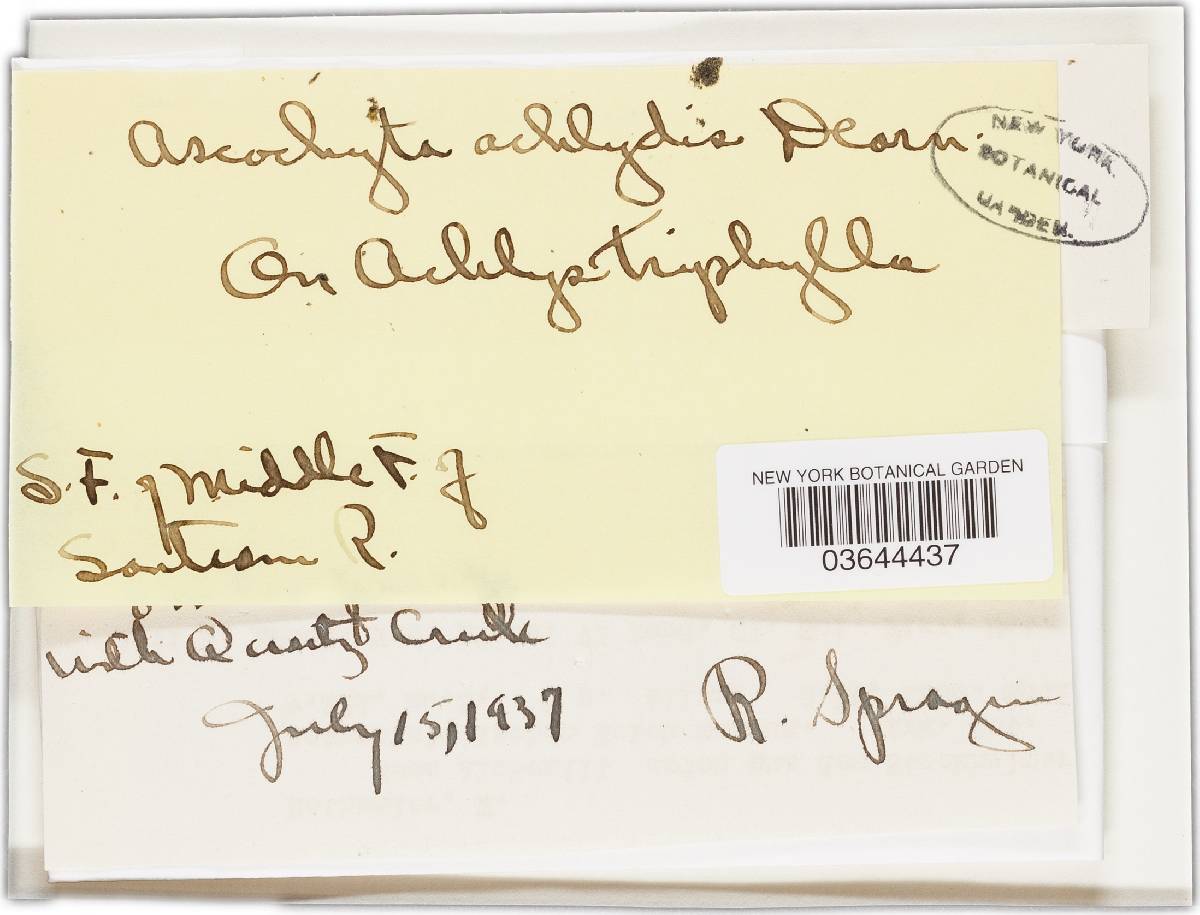 Ascochyta achlydis Dearn.
NEW YORK
BOTANICAL
GARDEN.
On Achlys triphylla
S.F. of Middle F. of
Santiam R.
NEW YORK BOTANICAL GARDEN
03644437
with Quartz Creek
July 15, 1937
R. Sprague